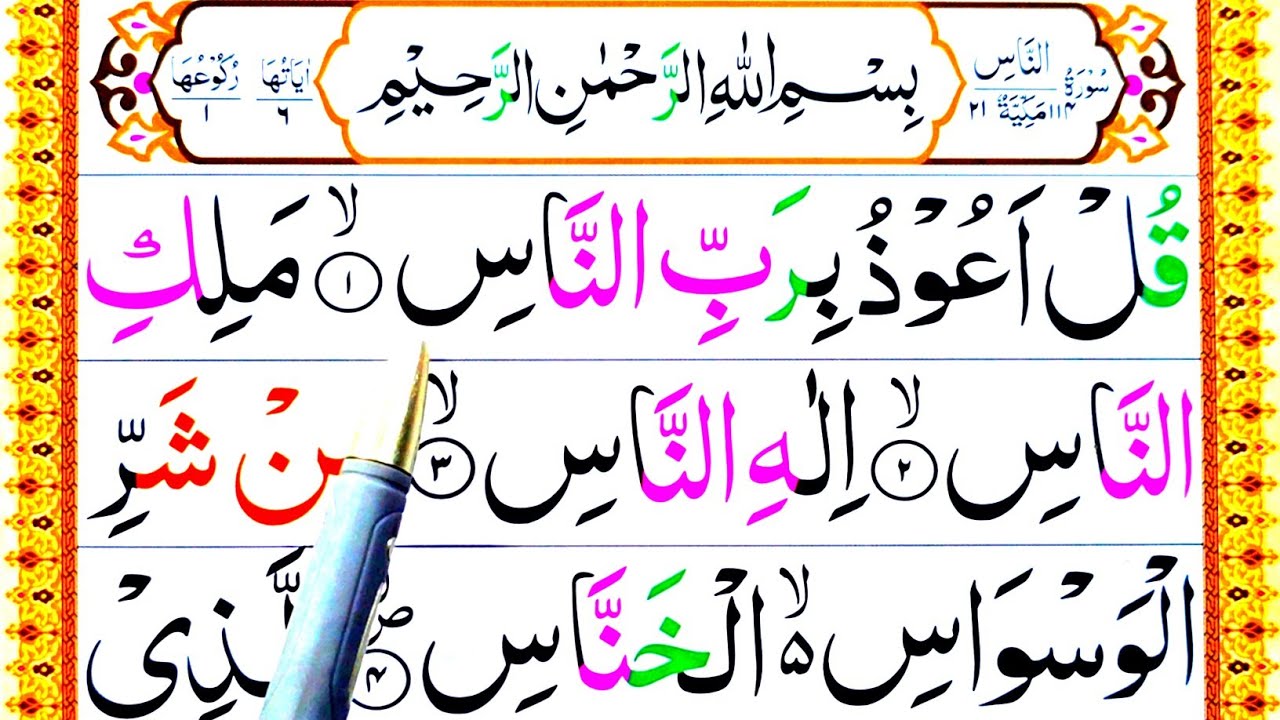 سُوْرَةُ النَّاسِ مَكِّيَّةٌ ١١٤ ٢١
بِسْمِ اللهِ الرَّحْمٰنِ الرَّحِيْمِ
اٰيَاتُهَا ٦ رُكُوْعُهَا ١
قُلْ اَعُوْذُ بِرَبِّ النَّاسِ ۙ ١ مَلِكِ
النَّاسِ ۙ ٢ اِلٰهِ النَّاسِ ۙ ٣ شَرِّ
الْوَسْوَاسِ ۵ۙ الْخَنَّاسِ ۪ۙ ۴